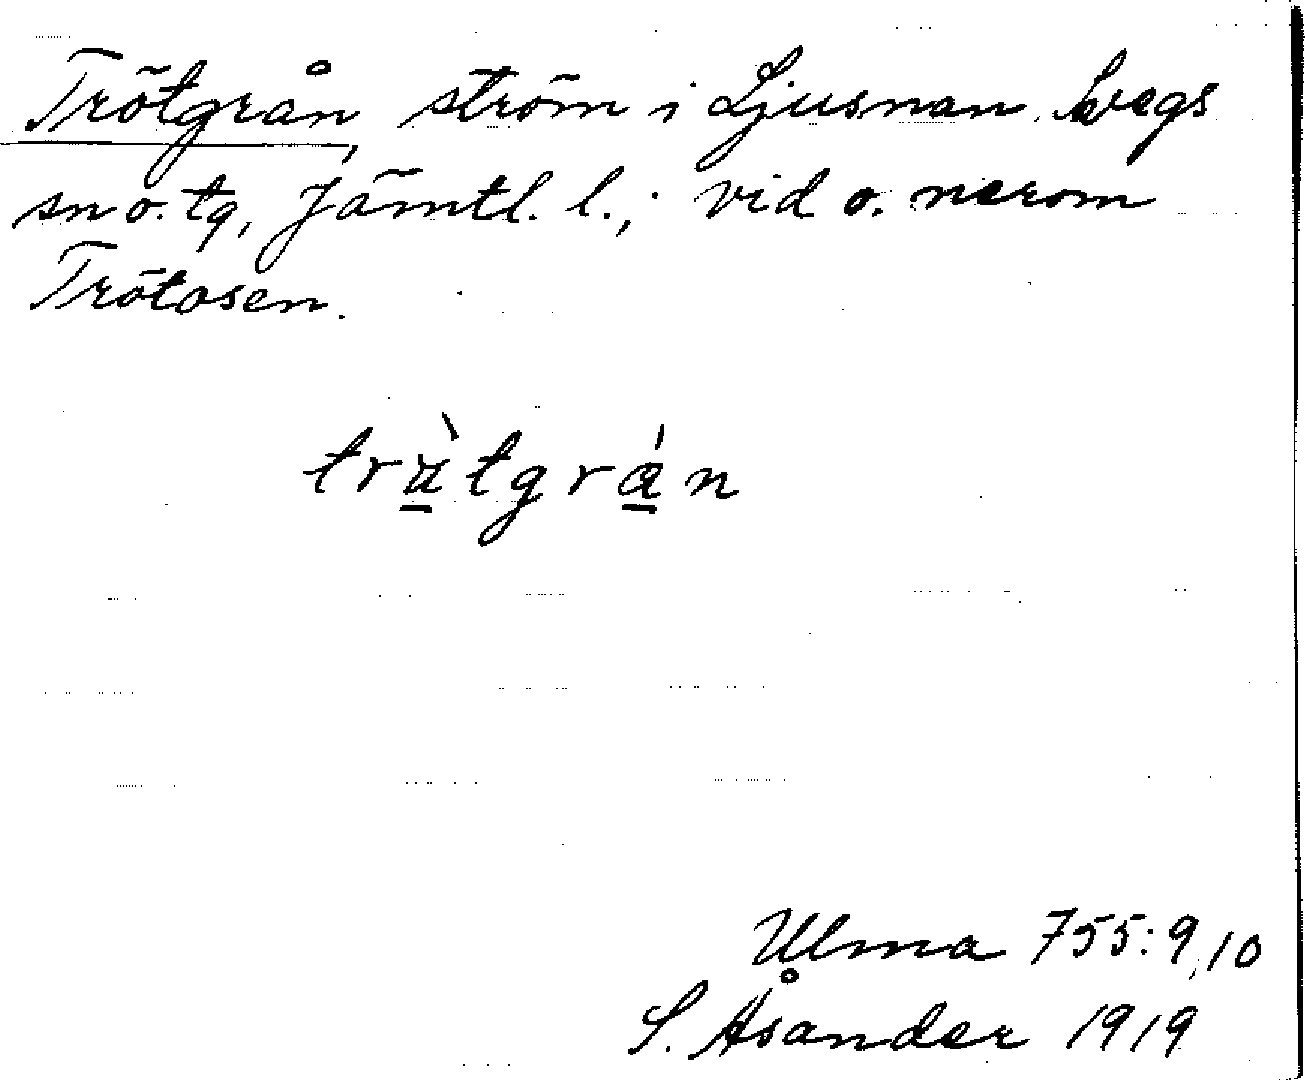 Trötgrån, ström i Ljusnan, Svegs
sn o. tg, Jämtl. l.; vid o. nerom
Trötosen.
trätgrån
Ulma 755:9,10
S. Åsander 1919